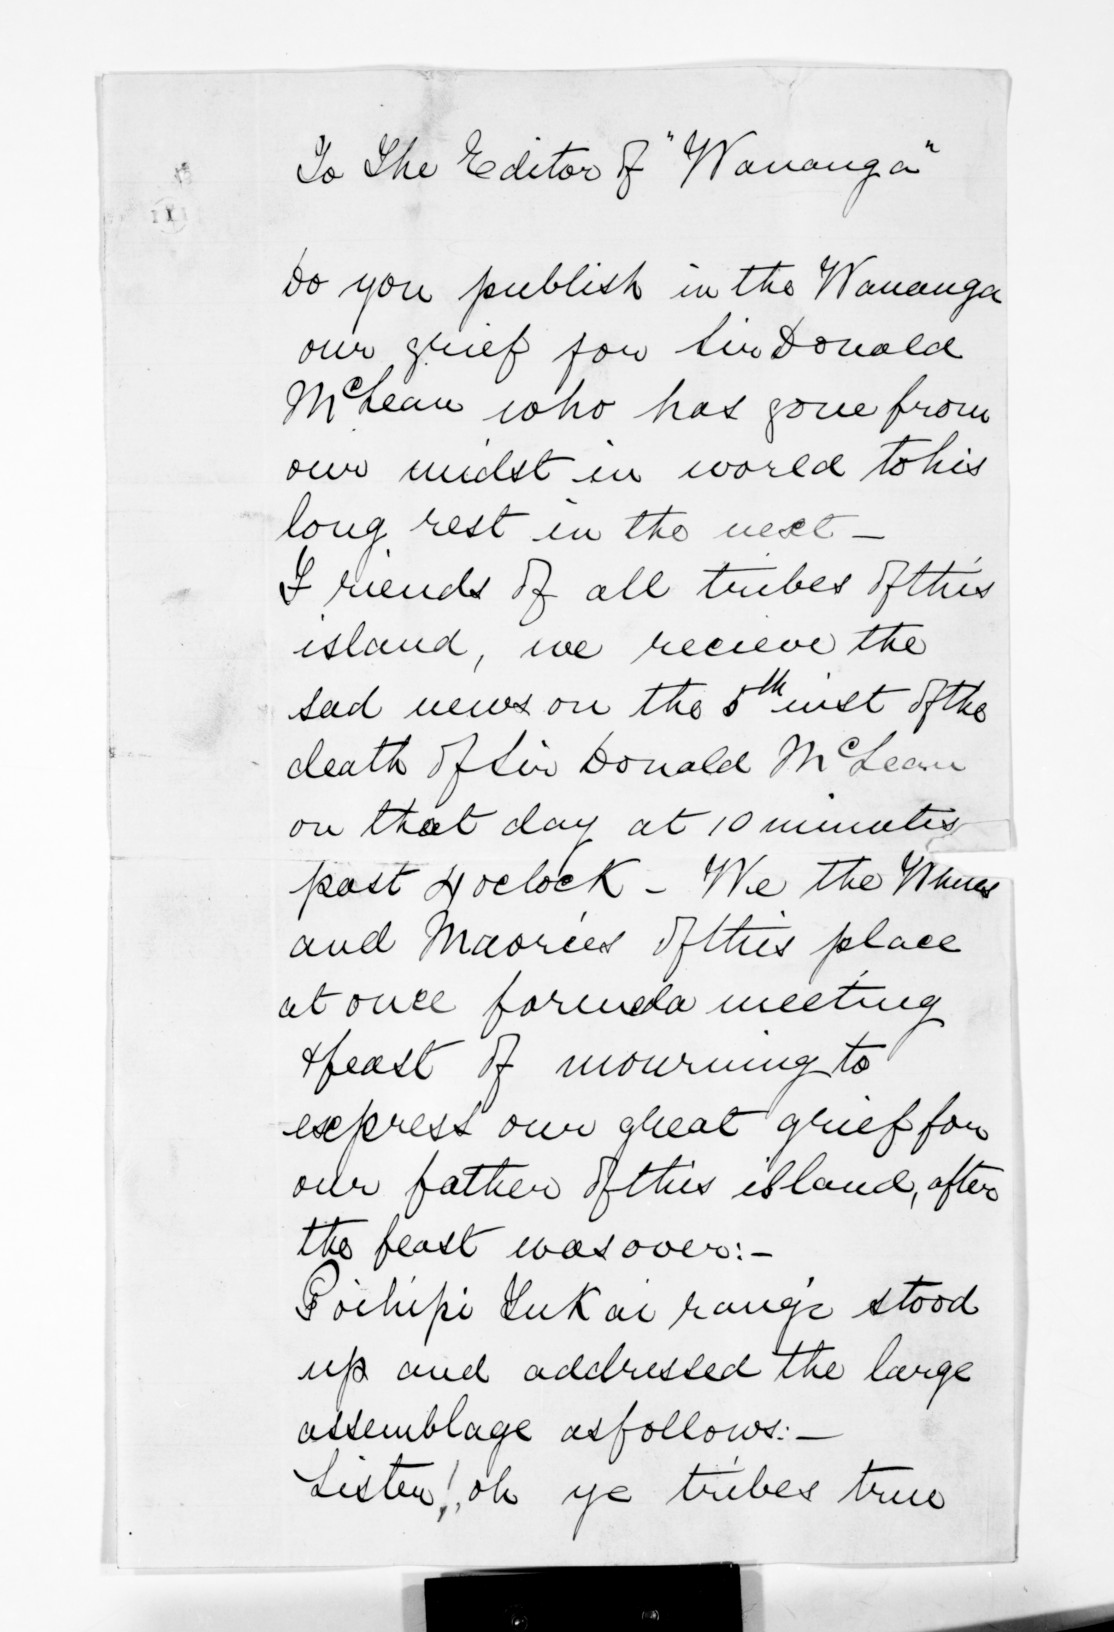 To The Editor of "Wananga"
Do you publish in the Wananga
our grief for Sir Donald
McLean who has gone from
our midst in world to his
long rest in the next —
Friends of all tribes of this
island, we recieve the
sad news on the 5th inst of the
death of Sir Donald McLean
on that day at 10 minutes
past 4 oclock – We the Whites
and Maories of this place
at once formed a meeting
& feast of mourning to
express our great grief for
our father of this island, after
the feast was over:–
Poihipi Tukairangi stood
up and addressed the large
assemblage as follows:–
Listen!, oh ye tribes true